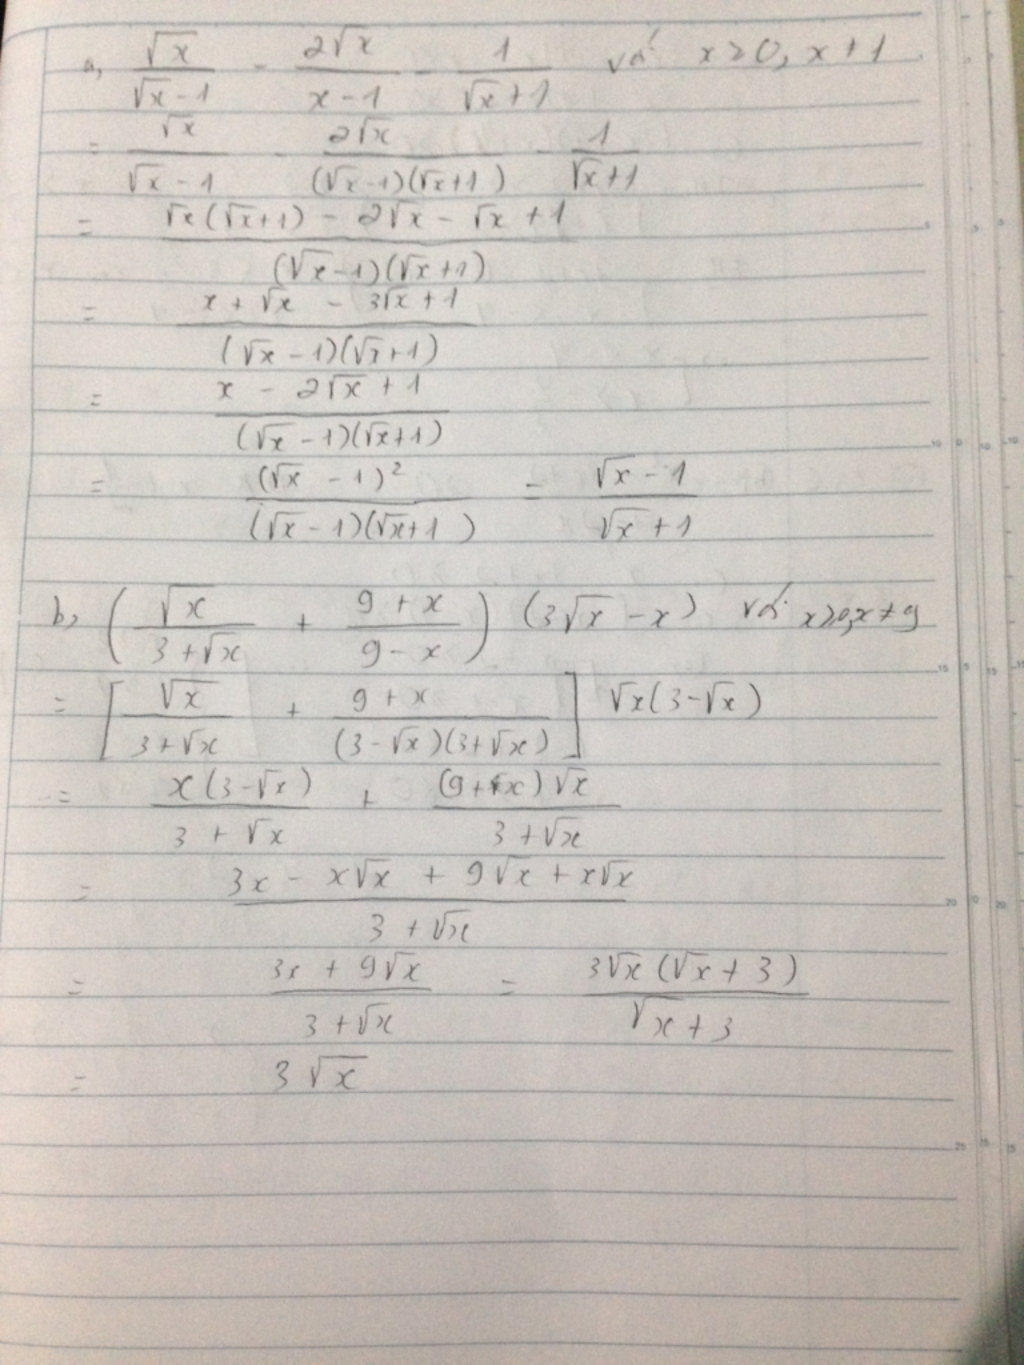 a, √x/(√x-1) - 2√x/(x-1) - 1/(√x+1) với x≥0, x≠1
= √x/(√x-1) - 2√x/((√x-1)(√x+1)) - 1/(√x+1)
= (√x(√x+1) - 2√x - √x + 1)/((√x-1)(√x+1))
= (x + √x - 3√x + 1)/((√x-1)(√x+1))
= (x - 2√x + 1)/((√x-1)(√x+1))
= (√x-1)²/((√x-1)(√x+1)) = (√x-1)/(√x+1)
b, (√x/(3+√x) + (9+x)/(9-x)) (3√x-x) với x≥0, x≠9
= [√x/(3+√x) + (9+x)/((3-√x)(3+√x))] √x(3-√x)
= x(3-√x)/(3+√x) + (9+x)√x/(3+√x)
= (3x - x√x + 9√x + x√x)/(3+√x)
= (3x + 9√x)/(3+√x) = 3√x(√x+3)/(√x+3)
= 3√x